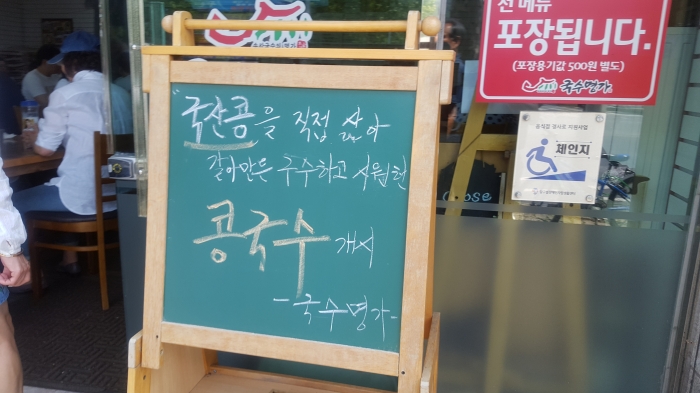 전 메뉴
포장됩니다.
(포장용기값 500원 별도)
국수명가
"국산콩을 직접 삶아
갈아만은 구수하고 시원한
콩국수 개시
-국수명가-
체인지
close